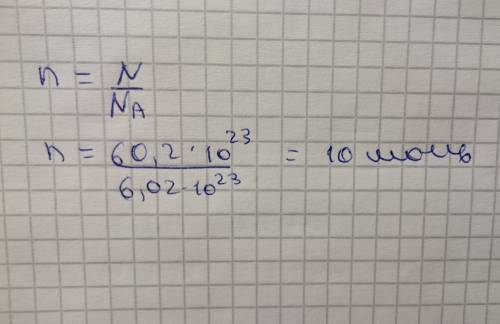 n = N / N_A
n = 60,2·10²³ / 6,02·10²³ = 10 моль